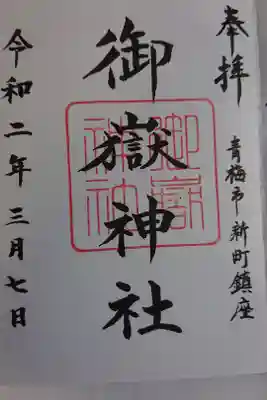 奉拝
青梅市新町鎮座
御嶽神社
御嶽神社
令和二年三月七日